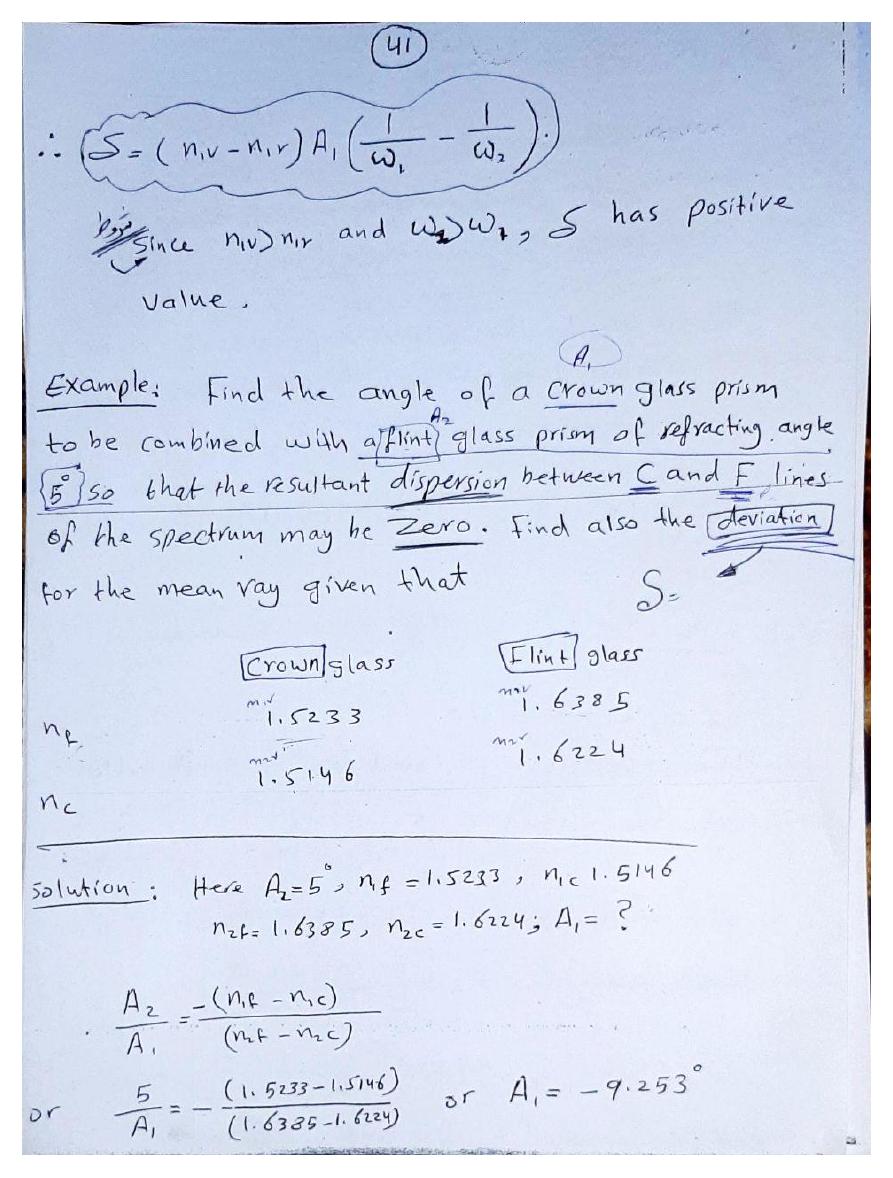 41
∴ S = (n₁v - n₁r) A₁ (1/ω₁ - 1/ω₂).
Since n₁v > n₁r and ω₂ > ω₁, S has positive
value.
A₁
Example: Find the angle of a crown glass prism
A₂
to be combined with a flint glass prism of refracting angle
5° so that the resultant dispersion between C and F lines
of the spectrum may be Zero. Find also the deviation
for the mean ray given that
S=
Crown glass Flint glass
nf 1.5233 1.6385
nc 1.5146 1.6224
Solution: Here A₂=5°, n₁f = 1.5233, n₁c 1.5146
n₂f= 1.6385, n₂c = 1.6224; A₁= ?
A₂/A₁ = -(n₁f - n₁c)/(n₂f - n₂c)
or 5/A₁ = - (1.5233-1.5146)/(1.6385-1.6224) or A₁ = -9.253°